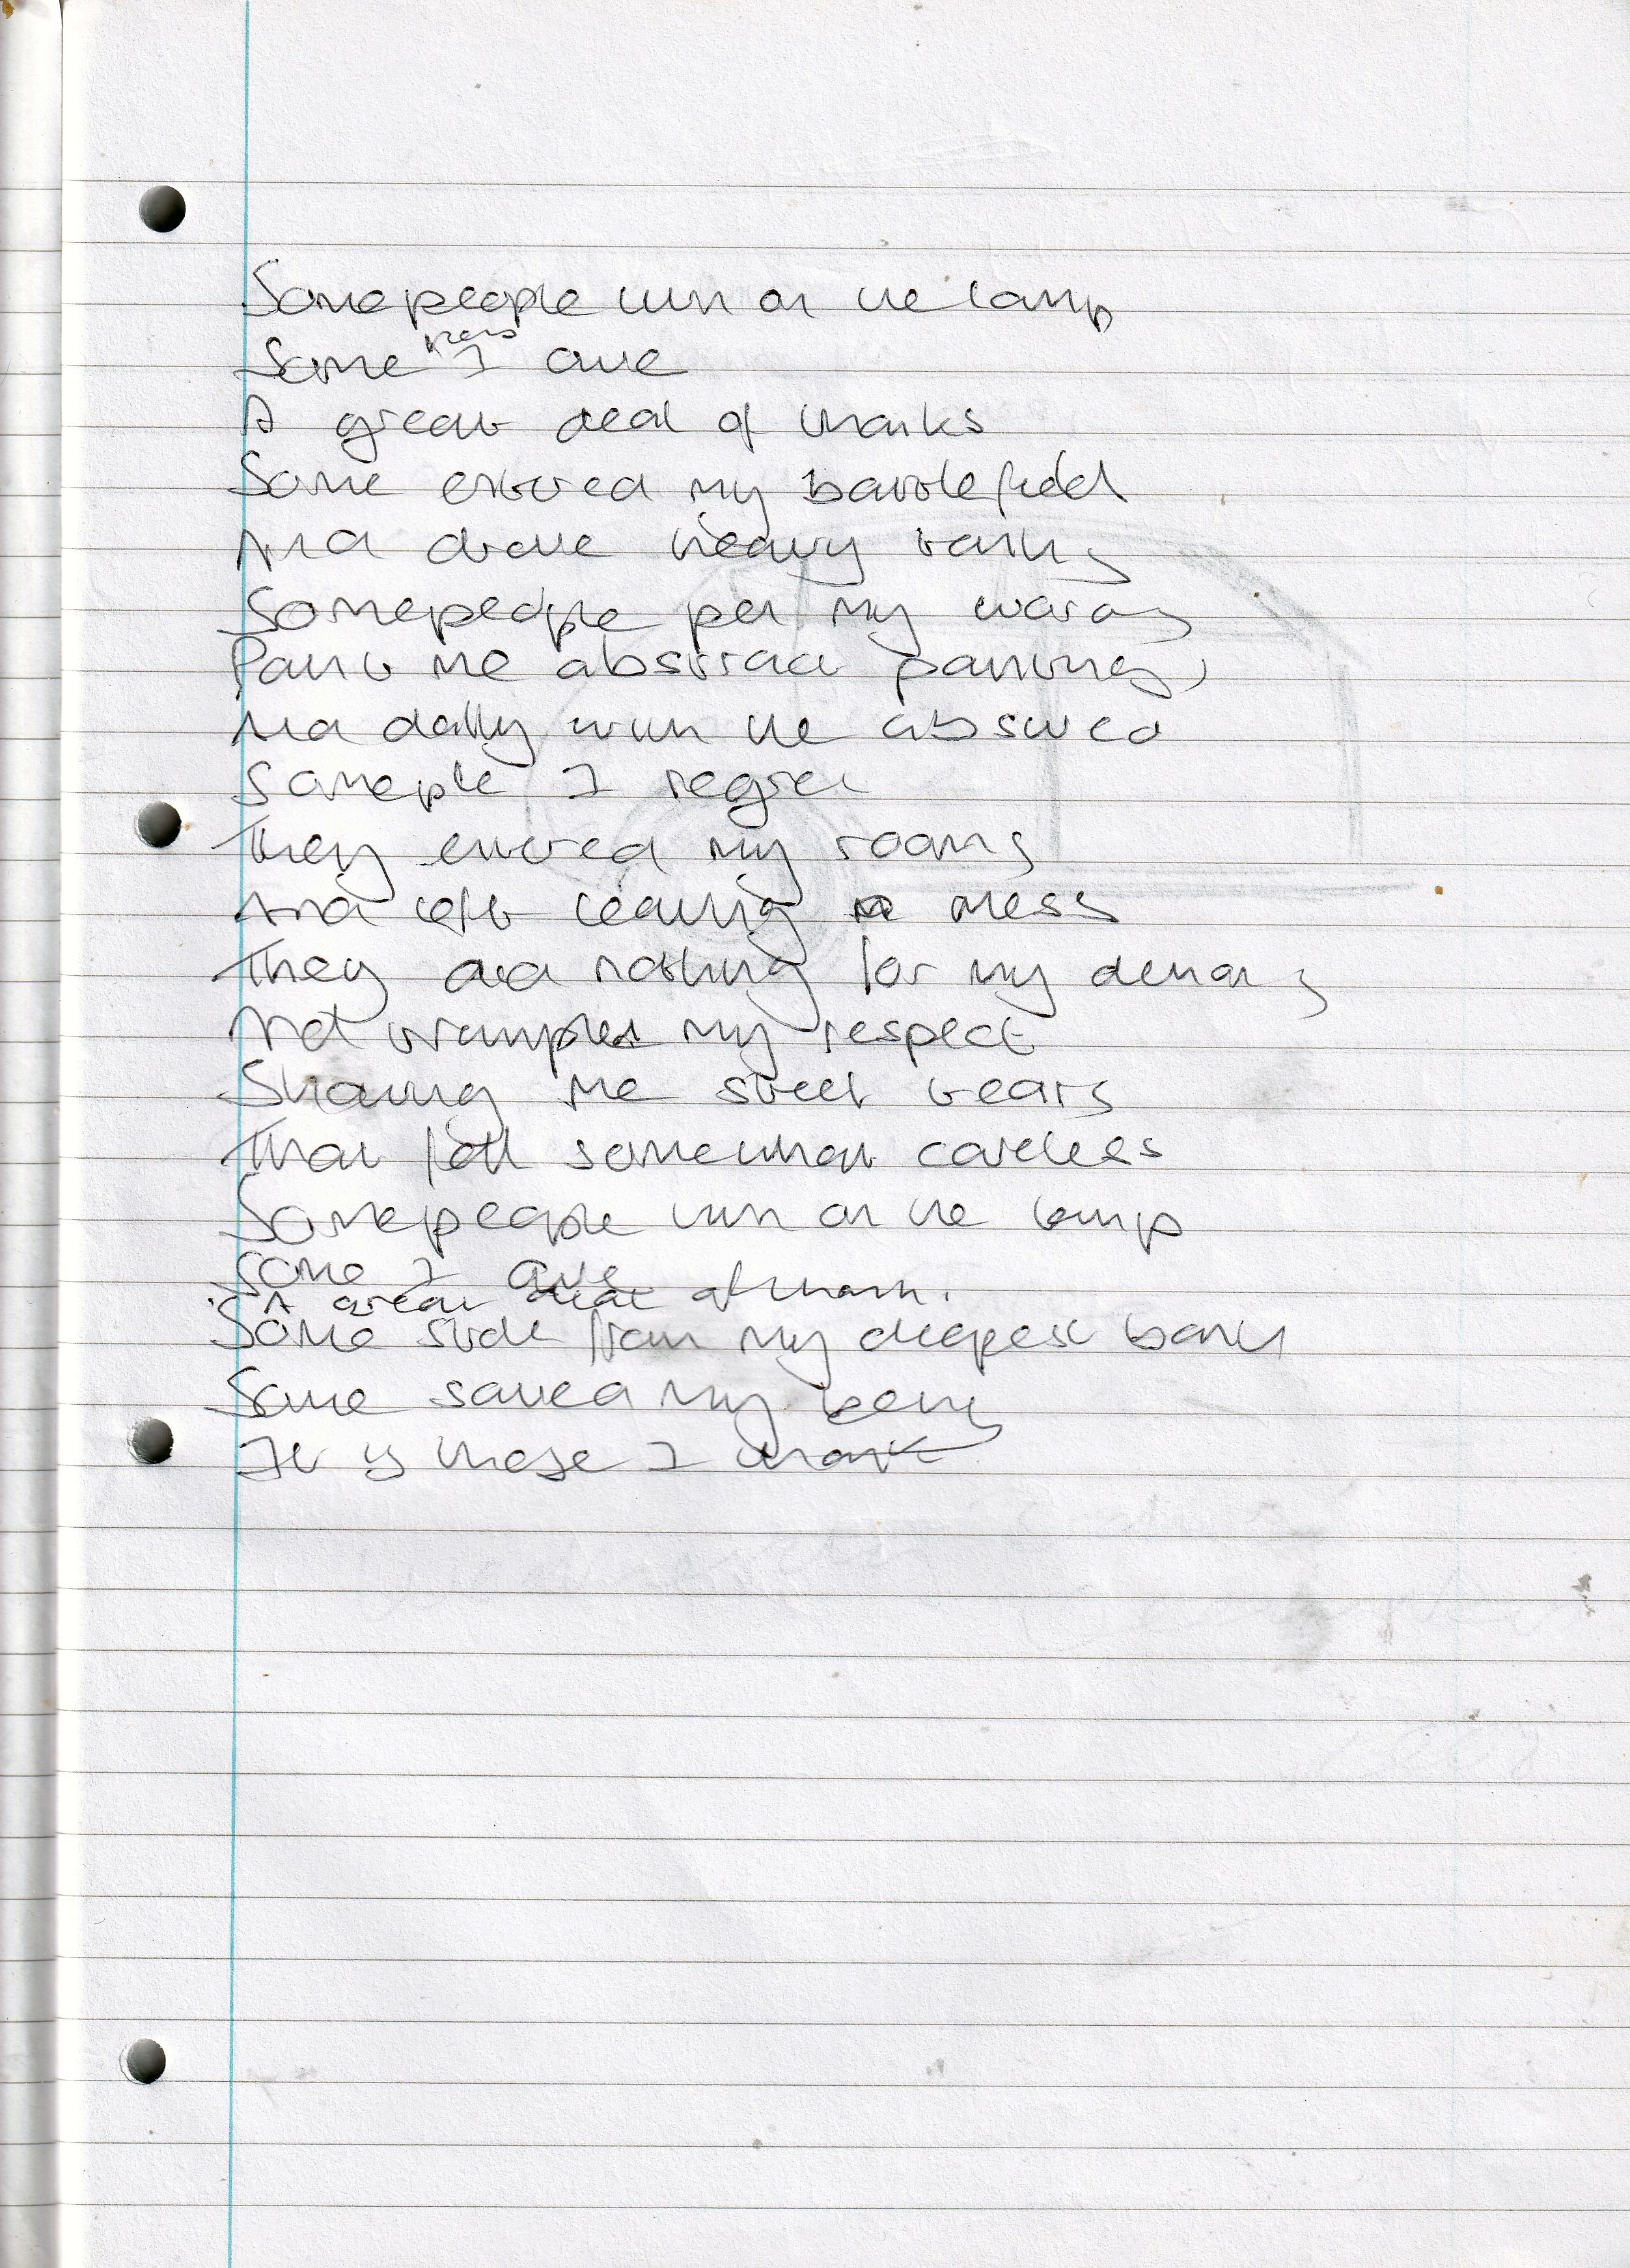 Some people turn on the lamp
Some I owe
A great deal of thanks
Some entered my battlefield
And drove heavy tanks
Some people pen my words
Paint me abstract paintings,
And dally with the absurd
Some people I regret
They entered my rooms
And left leaving a mess
They did nothing for my demons
And trampled my respect
Showing me street tears
That fell somewhat careless
Some people turn on the lamp
Some I owe
A great deal of thanks.
Some stole from my deepest bank
Some saved my being
It is those I thank